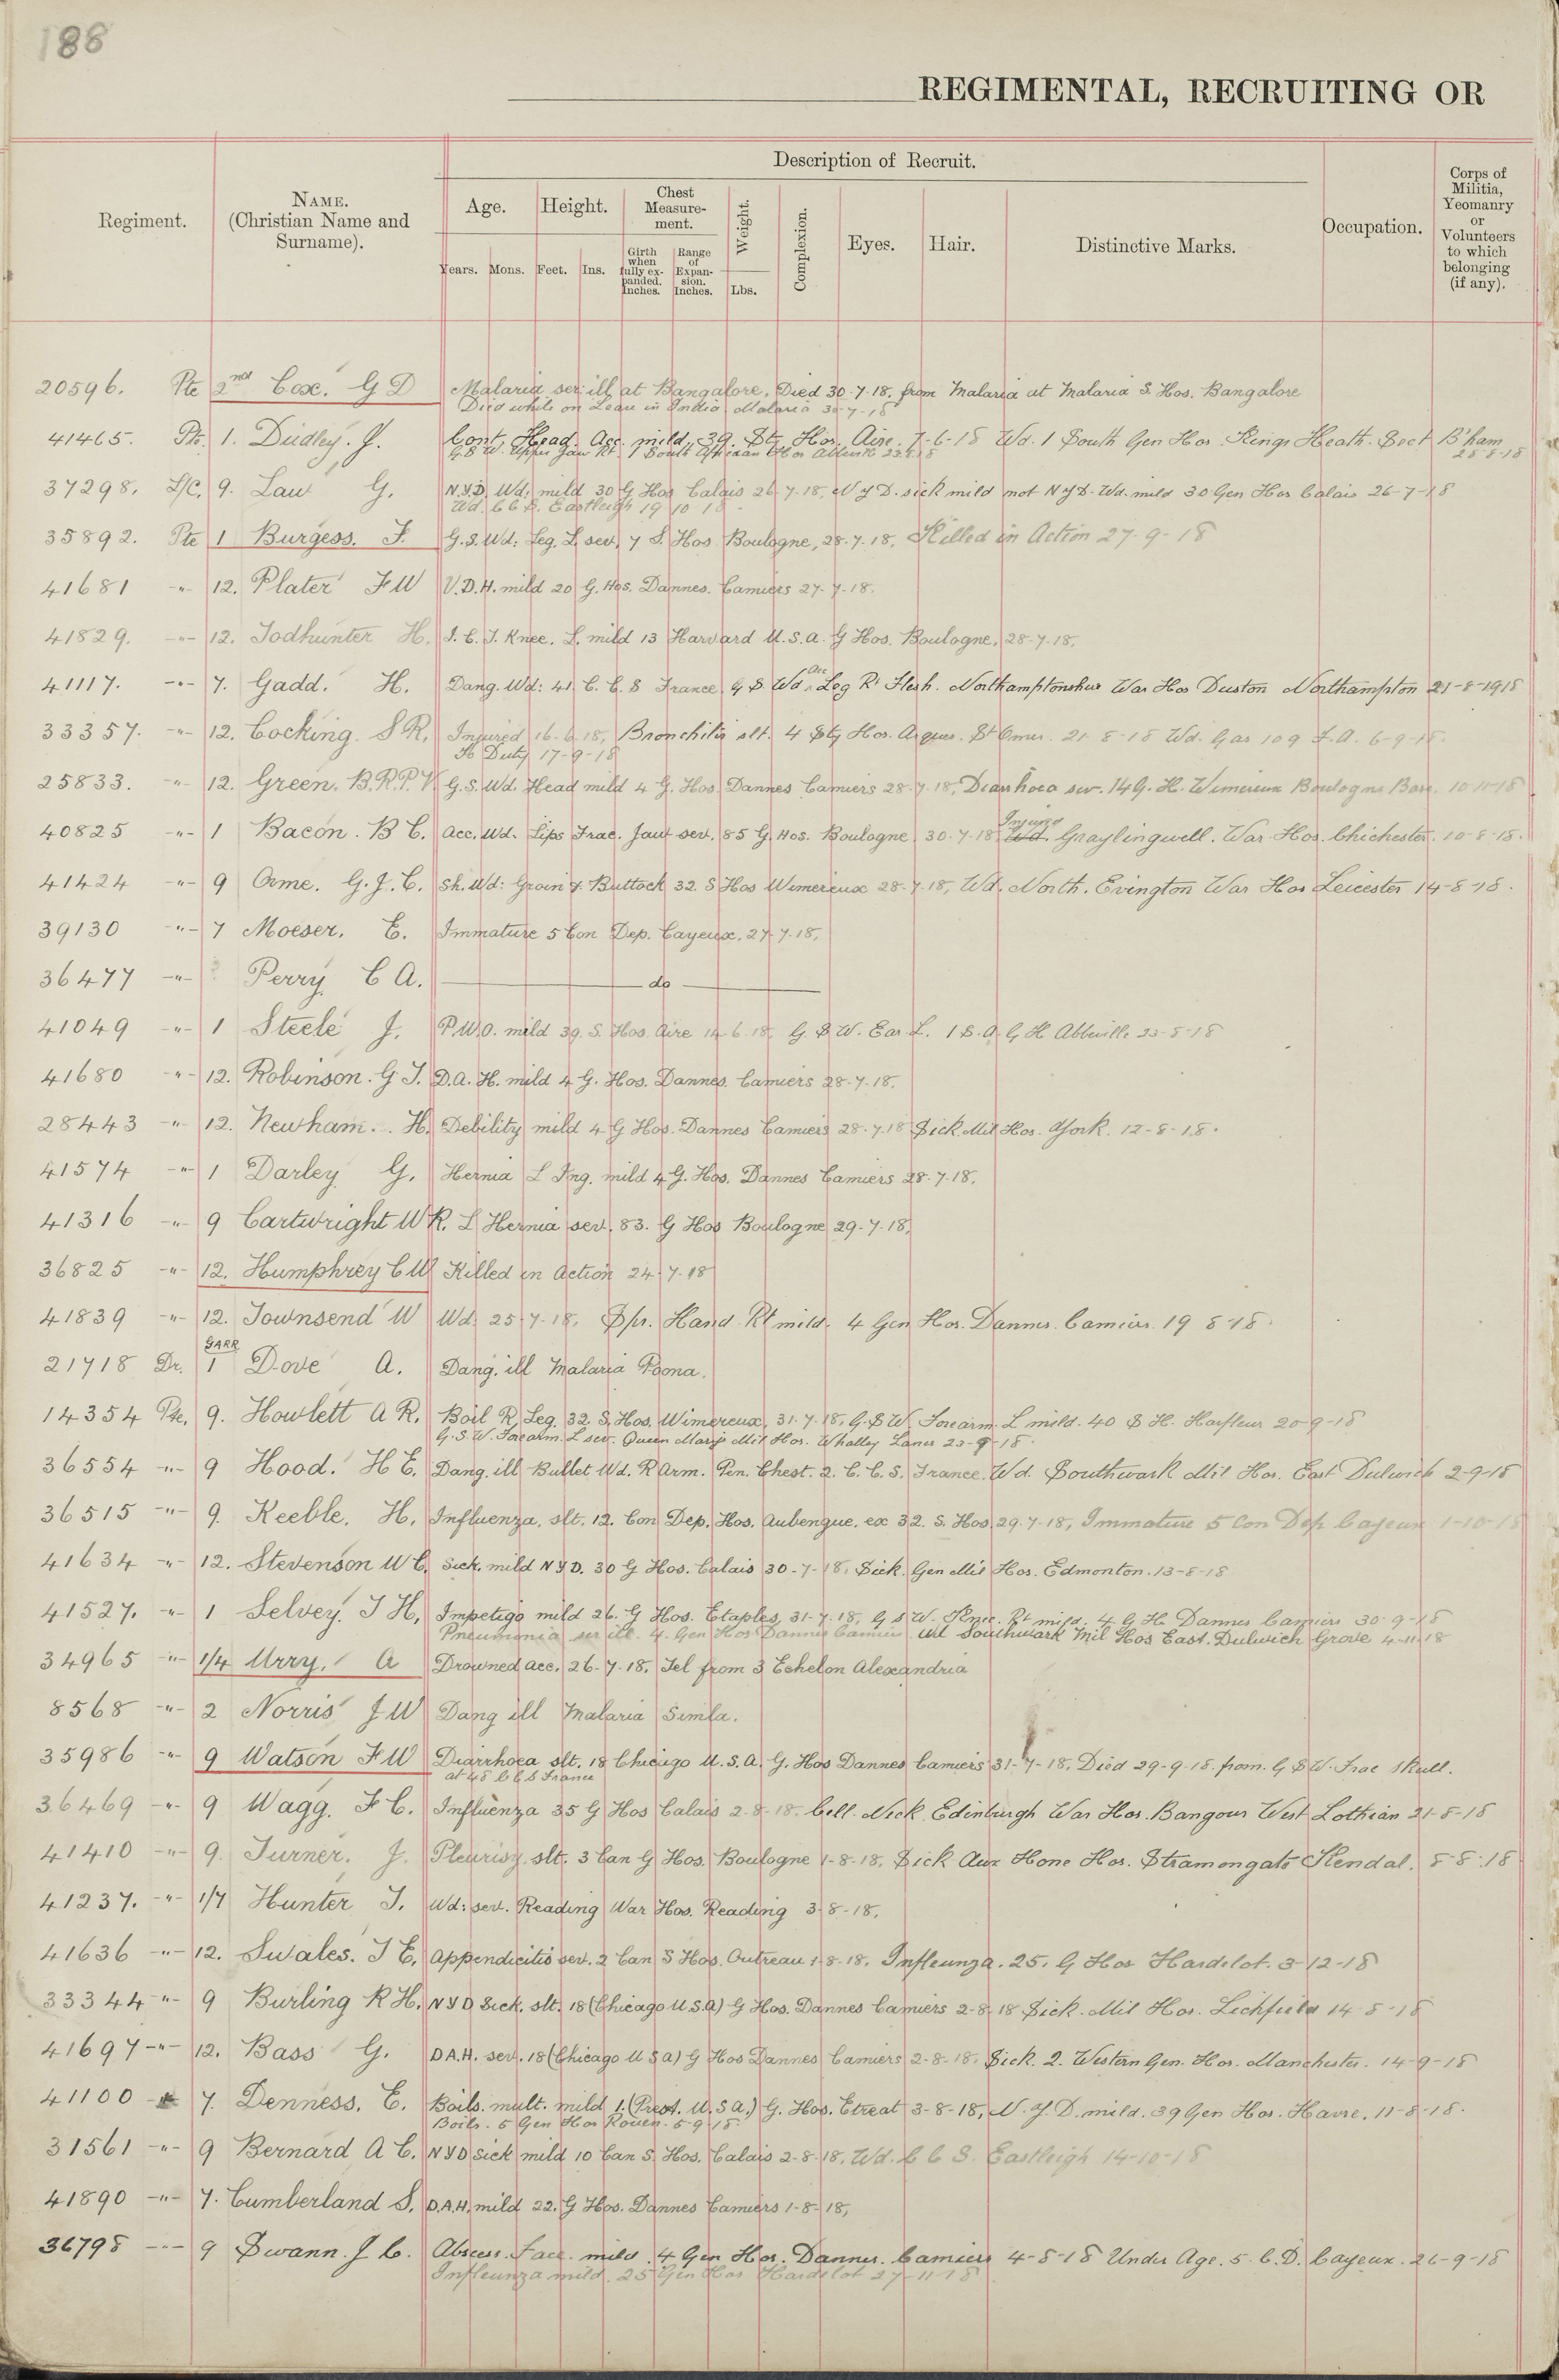 188
REGIMENTAL, RECRUITING OR
Description of Recruit.
Regiment.
NAME.
(Christian Name and
Surname).
Age.
Height.
Chest
Measure-
ment.
Weight.
Complexion.
Eyes.
Hair.
Distinctive Marks.
Occupation.
Corps of
Militia,
Yeomanry
or
Volunteers
to which
belonging
(if any).
Years.
Mons.
Feet.
Ins.
Girth
when
fully ex-
panded.
Inches.
Range
of
Expan-
sion.
Inches.
Lbs.
20596. Pte 2nd Cox. G D Malaria ser: ill at Bangalore, Died 30-7-18. from Malaria at Malaria S. Hos. Bangalore
Died while on Leave in India Malaria 30-7-18
41465. Pte. 1. Dudley. J. Cont. Head. Acc. mild. 39. Sty Hos. Aire. 7-6-18 Wd. 1 South Gen Hos. Kings Heath. Sect B'ham
G.S W. Upper Jaw Rt. 1 South African Hos Abbeville 23.8.18 28-8-18
37298. L/C. 9. Law G. N.Y.D. Wd: mild 30 G Hos Calais 26-7-18, N Y D. sick mild not N Y D. Wd. mild 30 Gen Hos Calais 26-7-18
Wd. C C S. Eastleigh 19 10 18.
35892. Pte 1 Burgess. F. G.S. Wd: Leg. L. sev, 7 S. Hos Boulogne, 28.7.18. Killed in Action 27-9-18
41681 -"- 12. Plater F W V.D.H. mild 20 G. Hos. Dannes. Camiers 27-7-18.
41829. -"- 12. Todhunter H. I.C.T. Knee. L. mild 13 Harvard U.S.A. G Hos. Boulogne, 28-7-18.
41117. -"- 7. Gadd. H. Dang. Wd: 41. C. C. S France G S Wd Acc Leg Rt Flesh. Northamptonshire War Hos Duston Northampton 21-8-1918
33357. -"- 12. Cocking. S R. Injured 16-6-18, Bronchitis slt. 4 Sty Hos. Arques. St Omer. 21-8-18 Wd. Gas 109 F.A. 6-9-18.
To Duty 17-9-18
25833. -"- 12. Green. B.R.P.V. G.S. Wd. Head mild 4 G. Hos. Dannes Camiers 28-7-18, Diarrhoea sev. 14 G. H. Wimereux Boulogne Base. 10-11-18
40825 -"- 1 Bacon. B C. Acc. Wd. Lips Frac. Jaw sev. 85 G. Hos. Boulogne 30-7-18 Wd. Injured Graylingwell. War. Hos. Chichester. 10-8-18.
41424 -"- 9 Orme. G. J. C. Sh. Wd: Groin & Buttock 32 S Hos Wimereux 28-7-18, Wd. North. Evington War Hos Leicester 14-8-18.
39130 -"- 7 Moeser. E. Immature 5 Con Dep. Cayeux. 27-7-18.
36477 -"- ? Perry C A. do
41049 -"- 1 Steele J. P.U.O. mild 39. S. Hos. Aire 14-6-18, G. S W. Ear L. 1 S. A. G H Abbeville 23-8-18
41680 -"- 12. Robinson. G J. D.A.H. mild 4 G. Hos. Dannes. Camiers 28-7-18.
28443 -"- 12. Newham. H. Debility mild 4 G Hos. Dannes Camiers 28.7.18 Sick. Mil Hos. York. 12-8-18.
41574 -"- 1 Darley G. Hernia L Ing. mild 4 G. Hos. Dannes Camiers 28-7-18.
41316 -"- 9 Cartwright W R. L Hernia sev. 83. G Hos Boulogne 29-7-18,
36825 -"- 12. Humphrey C W Killed in Action 24-7-18
41839 -"- 12. Townsend W Wd. 25-7-18, Spr. Hand Rt mild. 4 Gen Hos. Dannes. Camiers. 19-8-18.
21718 Dr. GARR 1 Dove A. Dang. ill Malaria Poona.
14354 Pte. 9. Howlett A R. Boil R Leg. 32. S. Hos. Wimereux, 31-7-18, G. S W. Forearm. L mild. 40 S H. Harfleur 20-9-18
G. S. W. Forearm. L sev. Queen Marys Mil Hos. Whalley Lancs 23-9-18.
36554 -"- 9 Hood. H E. Dang. ill Bullet Wd. R Arm. Pen. Chest. 2. C. C. S. France. Wd. Southwark Mil Hos. East Dulwich 2-9-18
36515 -"- 9. Keeble. H. Influenza. slt. 12. Con Dep. Hos. Aubengue. ex 32. S. Hos 29-7-18, Immature 5 Con Dep Cayeux 1-10-18
41634 -"- 12. Stevenson W C. Sick. mild N Y D. 30 G Hos. Calais 30-7-18, Sick. Gen Mil Hos. Edmonton. 13-8-18
41527. -"- 1 Selvey. J H, Impetigo mild 26. G Hos. Etaples, 31-7-18, G S W. Knee. Rt mild. 4 G H. Dannes Camiers 30-9-18
Pneumonia ser ill. 4. Gen Hos Dannes Camiers Wd Southwark Mil Hos East. Dulwich Grove 4-11-18
34965 -"- 1/4 Urry. A Drowned acc. 26-7-18. Tel from 3 Echelon Alexandria
8568 -"- 2 Norris J W Dang ill Malaria Simla.
35986 -"- 9 Watson F W Diarrhoea slt. 18 Chicago U.S.A. G. Hos Dannes Camiers 31-7-18. Died 29-9-18. from. G S W. Frac Skull.
at 48 C C S France
36469 -"- 9 Wagg. F C. Influenza 35 G Hos Calais 2-8-18. Cell. Neck Edinburgh War Hos. Bangour West Lothian 21-8-18
41410 -"- 9. Turner. J. Pleurisy slt. 3 Can G Hos. Boulogne 1-8-18. Sick Aux Home Hos. Stramongate Kendal. 8-8-18
41237. -"- 1/7 Hunter J. Wd: sev. Reading War Hos. Reading 3-8-18.
41636 -"- 12. Swales. J E. Appendicitis sev. 2 Can S Hos. Outreau 1-8-18. Influenza. 25. G Hos Hardelot. 3-12-18
33344 -"- 9 Burling R H. N Y D Sick. slt. 18 (Chicago U.S.A) G Hos. Dannes Camiers 2-8-18 Sick. Mil Hos. Lichfield 14-8-18
41697 -"- 12. Bass G. D.A.H. sev. 18 (Chicago U S A) G Hos Dannes Camiers 2-8-18. Sick. 2. Western Gen. Hos. Manchester. 14-9-18
41100 7. Denness. E. Boils. mult. mild 1. (Prest. U.S A.) G. Hos. Etreat 3-8-18, N. Y. D. mild. 39 Gen Hos. Havre. 11-8-18.
Boils. 5 Gen Hos Rouen. 5-9-18.
31561 -"- 9 Bernard A C. N Y D Sick mild 10 Can S. Hos. Calais 2-8-18, Wd. C C S. Eastleigh 14-10-18
41890 -"- 7. Cumberland S. D.A.H. mild 22. G Hos. Dannes Camiers 1-8-18,
36798 -"- 9 Swann. J C. Abscess. Face. mild. 4 Gen Hos. Dannes. Camiers 4-8-18 Under Age. 5. C. D. Cayeux. 26-9-18
Influenza mild. 25 Gen Hos Hardelot 27-11-18